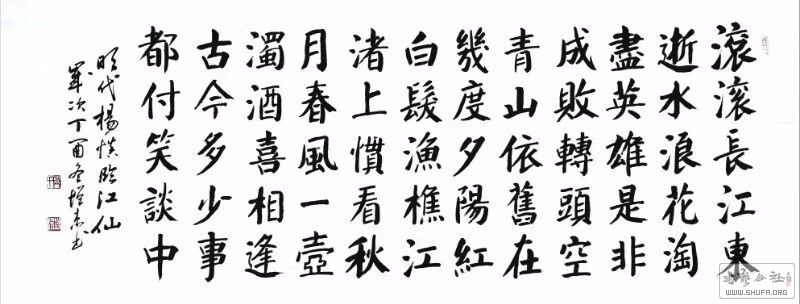 滾滾長江東
逝水浪花淘
盡英雄是非
成敗轉頭空
青山依舊在
幾度夕陽紅
白髮漁樵江
渚上慣看秋
月春風一壺
濁酒喜相逢
古今多少事
都付笑談中
明代楊慎臨江仙
歲次丁酉冬
书艺公社
WWW.SHUFA.ORG